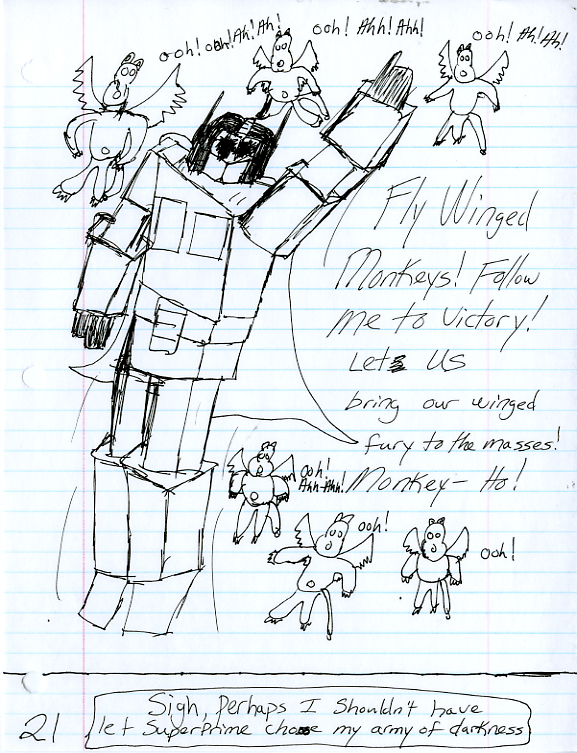 ooh! ooh! Ah! Ah!
ooh! Ahh! Ahh!
ooh! Ah! Ah!
Fly Winged
Monkeys! Follow
me to Victory!
Let Us
bring our winged
fury to the masses!
Monkey-Ho!
ooh!
Ahh-Ahh!
ooh!
ooh!
21
Sigh, Perhaps I Shouldn't have
let SuperPrime chose my army of darkness